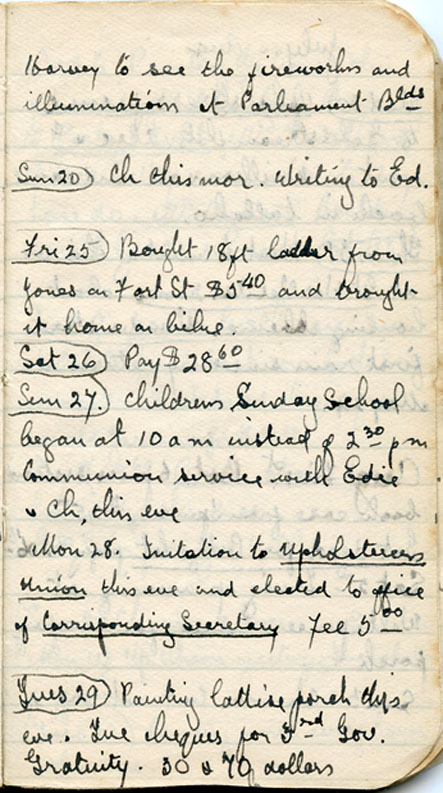 Harvey to see the fireworks and
illuminations at Parliament Blds
Sun 20 Ch this mor. Writing to Ed.
Fri 25 Bought 18ft ladder from
Jones on Fort St $5.40 and brought
it home on bike.
Sat 26 Pay $28.60
Sun 27. Childrens Sunday School
began at 10 am instead of 2.30 pm
Communion service with Edie
& Ch, this eve
Mon 28. Initation to Upholsterers
Union this eve and elected to office
of Corrisponding Secretary Fee 5.00
Tues 29 Painting lattise porch this
eve. Two cheques for 3rd Gov.
Gratuity. 30 & 70 dollars